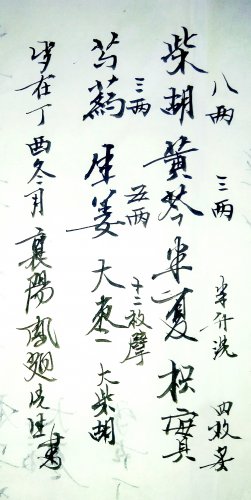 八两 三两 半升洗 四枚炙
柴胡 黄芩 半夏 枳实
三两 五两 十二枚擘
芍药 生姜 大枣 大柴胡
岁在丁酉冬月襄陽鳳廻先生書